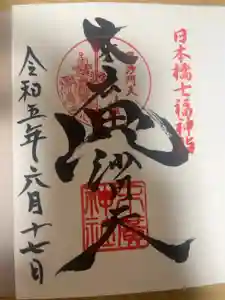 日本橋七福神詣
末廣毘沙門天
毘沙門天
末廣神社
令和五年六月十七日